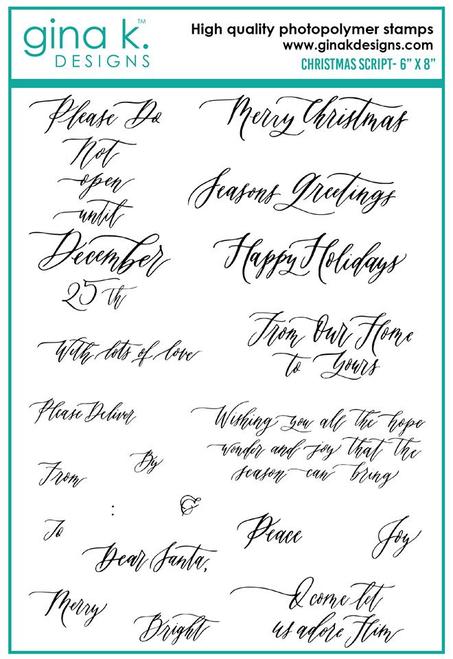 gina k.
DESIGNS
High quality photopolymer stamps
www.ginakdesigns.com
CHRISTMAS SCRIPT- 6” X 8”
Please Do
Not
open
until
December
25th
With lots of love
Please Deliver
By
From
:
&
To
Dear Santa,
Merry
Bright
Merry Christmas
Seasons Greetings
Happy Holidays
From Our Home
to Yours
Wishing you all the hope
wonder and joy that the
season can bring
Peace
Joy
O come let
us adore Him